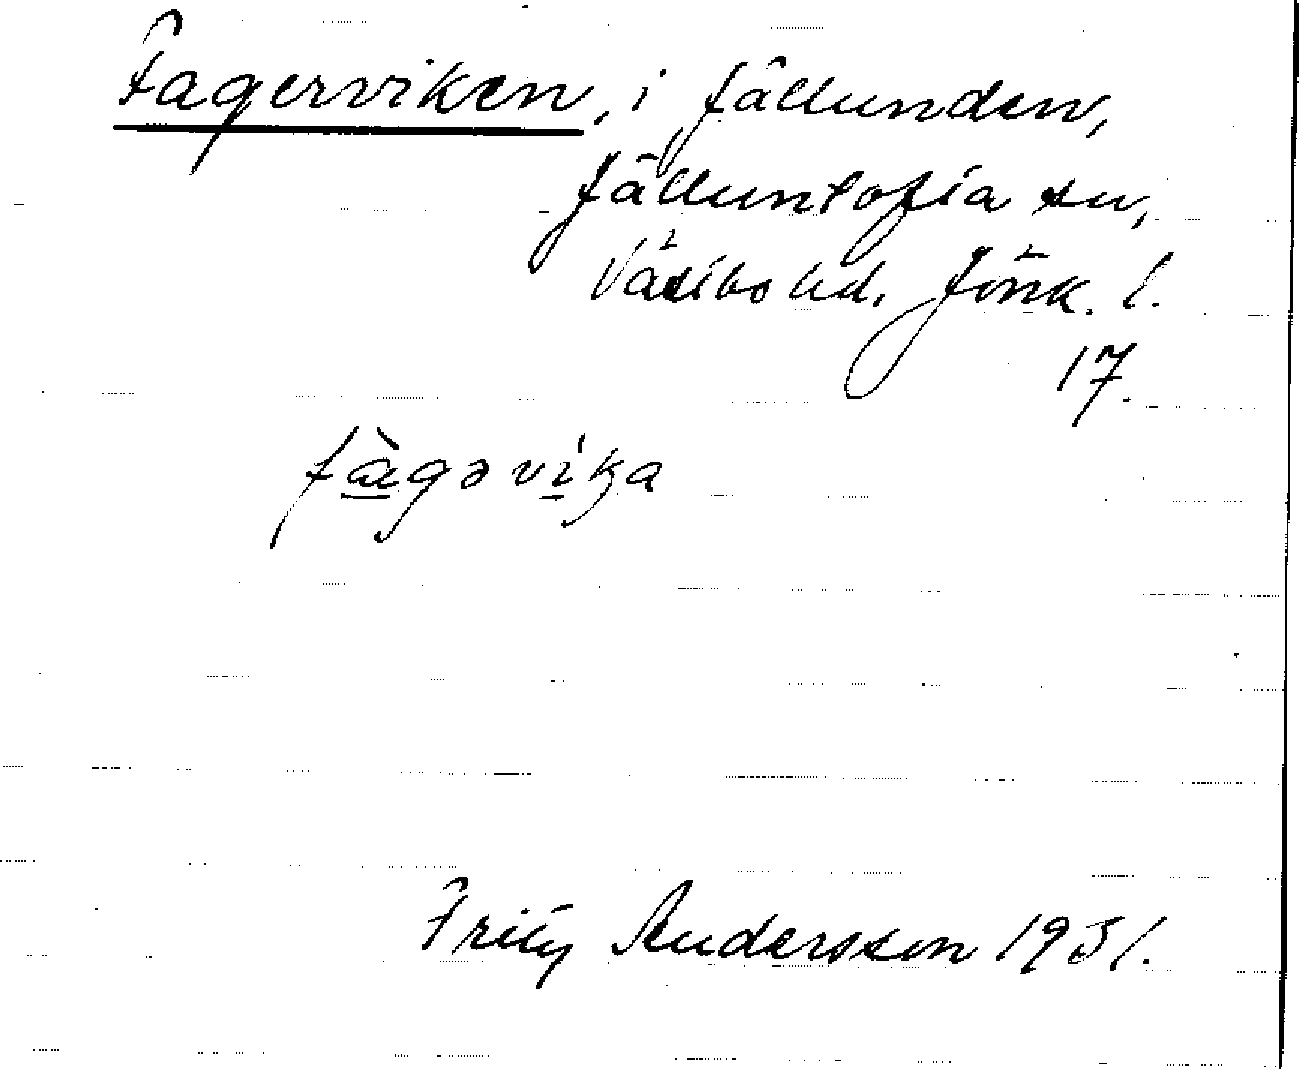 Fagerviken, i Jällunden,
Jälluntofta sn,
Västbo hd. Jönk. l.
17.
fàgəvika
Frity Andersson 1931.